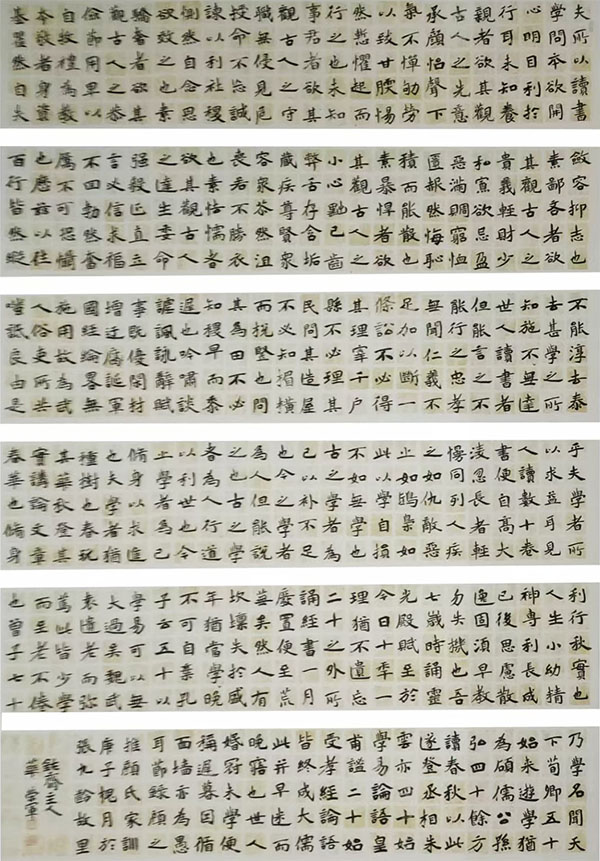 夫所以讀書
學問本欲開
心明目利於
行耳未知養
親者欲其觀
古人之先意
承顏怡聲下
氣不憚劬勞
以致甘腝惕
然慙懼起而
行之也未知
事君者欲其
觀古人之守
職無侵見危
授命不忘誠
諫以利社稷
惻然自念思
欲效之也素
驕奢者欲其
觀古人之恭
儉節用卑以
自牧禮為教
本敬者身
基瞿然自失
斂容抑志也
素鄙吝者欲
其觀古人之
貴義輕財少
私寡欲忌盈
惡滿賙窮恤
匱赧然悔恥
積而能散也
素暴悍者欲
其觀古人之
小心黜己齒
弊舌存含垢
藏疾尊賢眾
容眾苶然沮
喪若不勝衣
也素怯懦者
欲其觀古人
之達生委命
強毅正直立
言必信求福
不回勃然奮
厲不可恐懾
也歷茲以往
百行皆然縱
不能淳去泰
去甚學之所
知施無不達
世人讀書者
但能言之不
能行之忠孝
無聞仁義不
足加以斷一
條訟不必得
其理宰千戶
縣不必理其
民問其造屋
不必知楣橫
而梲豎也問
其為田不必
知稷早而黍
遲也吟嘯談
謔諷詠辭賦
事既優閑材
增迂誕軍
國經綸略無
施用故為武
人俗吏所共
嗤詆良由是
乎夫學者所
以求益耳見
人讀數十卷
書便自高大
凌忽長者輕
慢同列人疾
之如仇敵惡
之如鴟梟如
此以學自損
不如無學也
古之學者為
己以補不足
也今之學者
為人但能說
之也古之學
者為人行道
以利世也今
之學者為己
脩身以求進
也夫學者猶
種樹也春玩
其華秋登其
實講論文章
春華也脩身
利行秋實也
人生小幼精
神專利長成
已後思慮散
逸固須早教
勿失機也吾
七歲時誦靈
光殿賦至於
今日十年一
理猶不遺忘
二十之外所
誦經書一月
廢置便至荒
蕪矣然人有
坎壈失於盛
年猶當晚學
不可自棄孔
子云五十以
學易可以無
大過矣魏武
袁遺老而彌
篤此皆少學
而至老不倦
也曾子七十
乃學名聞天
下荀卿五十
始來遊學猶
為碩儒公孫
弘四十餘方
讀春秋以此
遂登丞相朱
雲亦四十始
學易論語皇
甫謐二十始
受孝經論語
皆終成大儒
此並早迷而
晚寤也世人
婚冠未學便
稱遲暮因循
面牆亦為愚
耳節錄顏之
推顏氏家訓
庚子槐月於
張九齡故里
鈍齋主人
華雲軍